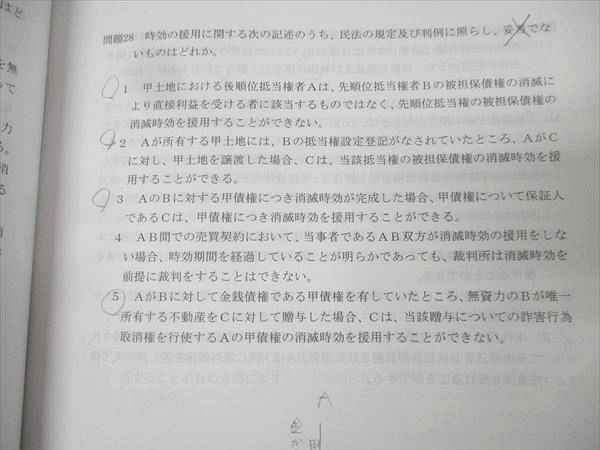 問題28 時効の援用に関する次の記述のうち、民法の規定及び判例に照らし、妥当でな
いものはどれか。
1 甲土地における後順位抵当権者Aは、先順位抵当権者Bの被担保債権の消滅に
より直接利益を受ける者に該当するものではなく、先順位抵当権の被担保債権の
消滅時効を援用することができない。
2 Aが所有する甲土地には、Bの抵当権設定登記がなされていたところ、AがC
に対し、甲土地を譲渡した場合、Cは、当該抵当権の被担保債権の消滅時効を援
用することができる。
3 AのBに対する甲債権につき消滅時効が完成した場合、甲債権について保証人
であるCは、甲債権につき消滅時効を援用することができる。
4 AB間での売買契約において、当事者であるAB双方が消滅時効の援用をしな
い場合、時効期間を経過していることが明らかであっても、裁判所は消滅時効を
前提に裁判をすることはできない。
5 AがBに対して金銭債権である甲債権を有していたところ、無資力のBが唯一
所有する不動産をCに対して贈与した場合、Cは、当該贈与についての詐害行為
取消権を行使するAの甲債権の消滅時効を援用することができない。
A
金
か